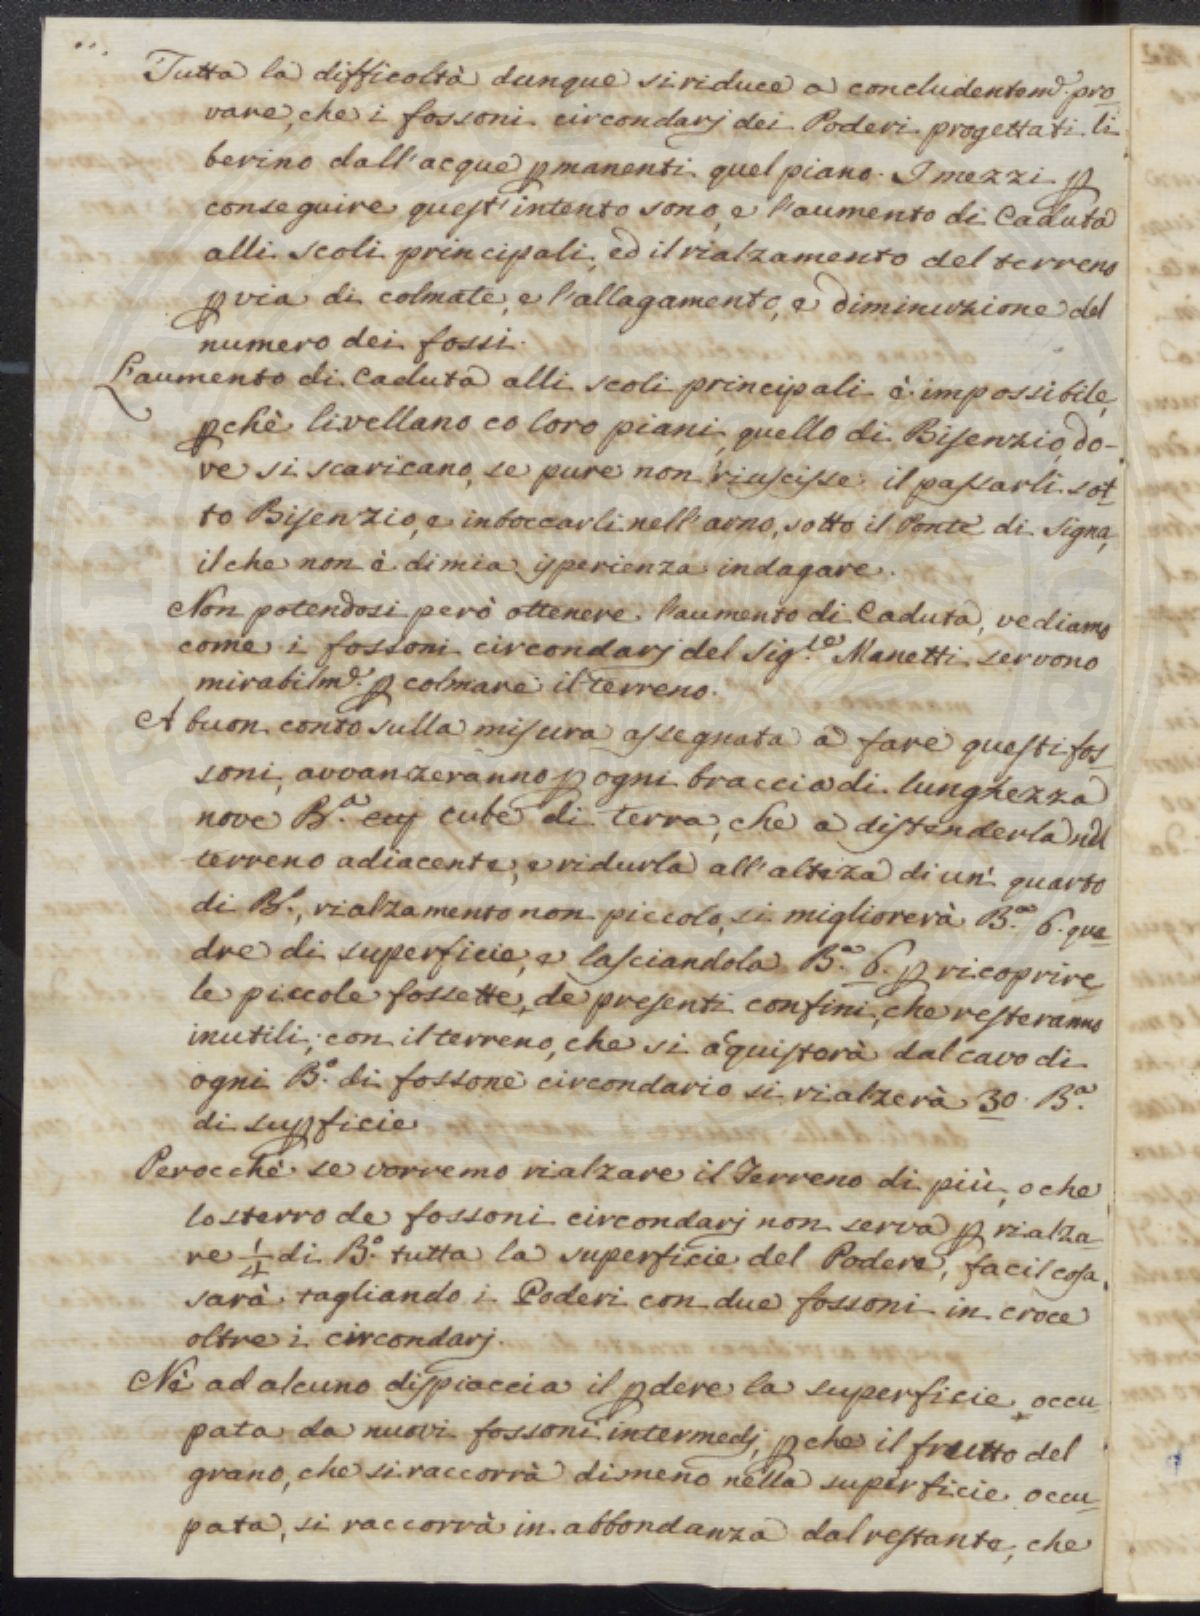 Tutta la difficoltà dunque si riduce a concludentem.e pro
vare, che i fossoni circondarj dei Poderi progettati li
berino dall'acque pmanenti quel piano. I mezzi p
conseguire quest'intento sono, e l'aumento di Caduta
alli scoli principali, ed il rialzamento del terreno
p via di colmate, e l'allagamento, e diminuzione del
numero dei fossi.
L'aumento di Caduta alli scoli principali è impossibile,
pchè livellano co loro piani, quello di Bisenzio, do-
ve si scaricano, se pure non riuscisse il passarli sot
to Bisenzio, e inboccarli nell'arno, sotto il Ponte di Signa,
il che non è di mia isperienza indagare.
Non potendosi però ottenere l'aumento di Caduta, vediamo
come i fossoni circondarj del Sig.re Manetti servono
mirabilm.e p colmare il terreno.
A buon conto sulla misura assegnata a fare questi fos
soni, avvanzeranno p ogni braccia di lunghezza
nove B.a cuj cube di terra, che a distenderla nel
terreno adiacente, e ridurla all'alteza di un quarto
di B.o, rialzamento non piccolo, si migliorerà B.a 6. qua
dre di superficie, e lasciandola B.a 6. p ricoprire
le piccole fossette, de presenti confini, che resteranno
inutili; con il terreno, che si acquisterà dal cavo di
ogni B.o di fossone circondario si rialzerà 30. B.a
di supficie
Perocchè se vorremo rialzare il Terreno di più, o che
lo sterro de fossoni circondarj non serva p rialza-
re 1/4 di B.o tutta la superficie del Podere, facil cosa
sarà tagliando i Poderi con due fossoni in croce
oltre i circondarj.
Nè ad alcuno dispiaccia il pdere la superficie occu-
pata da nuovi fossoni intermedj, pche il frutto del
grano, che si raccorrà di meno nella superficie occu-
pata, si raccorrà in abbondanza dal restante, che